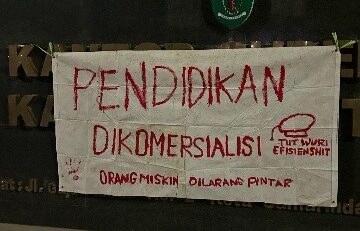 KANTOR
PENDIDIKAN
DIKOMERSIALISI
TUT WURI
EFISIENSHIT
ORANG MISKIN DILARANG PINTAR